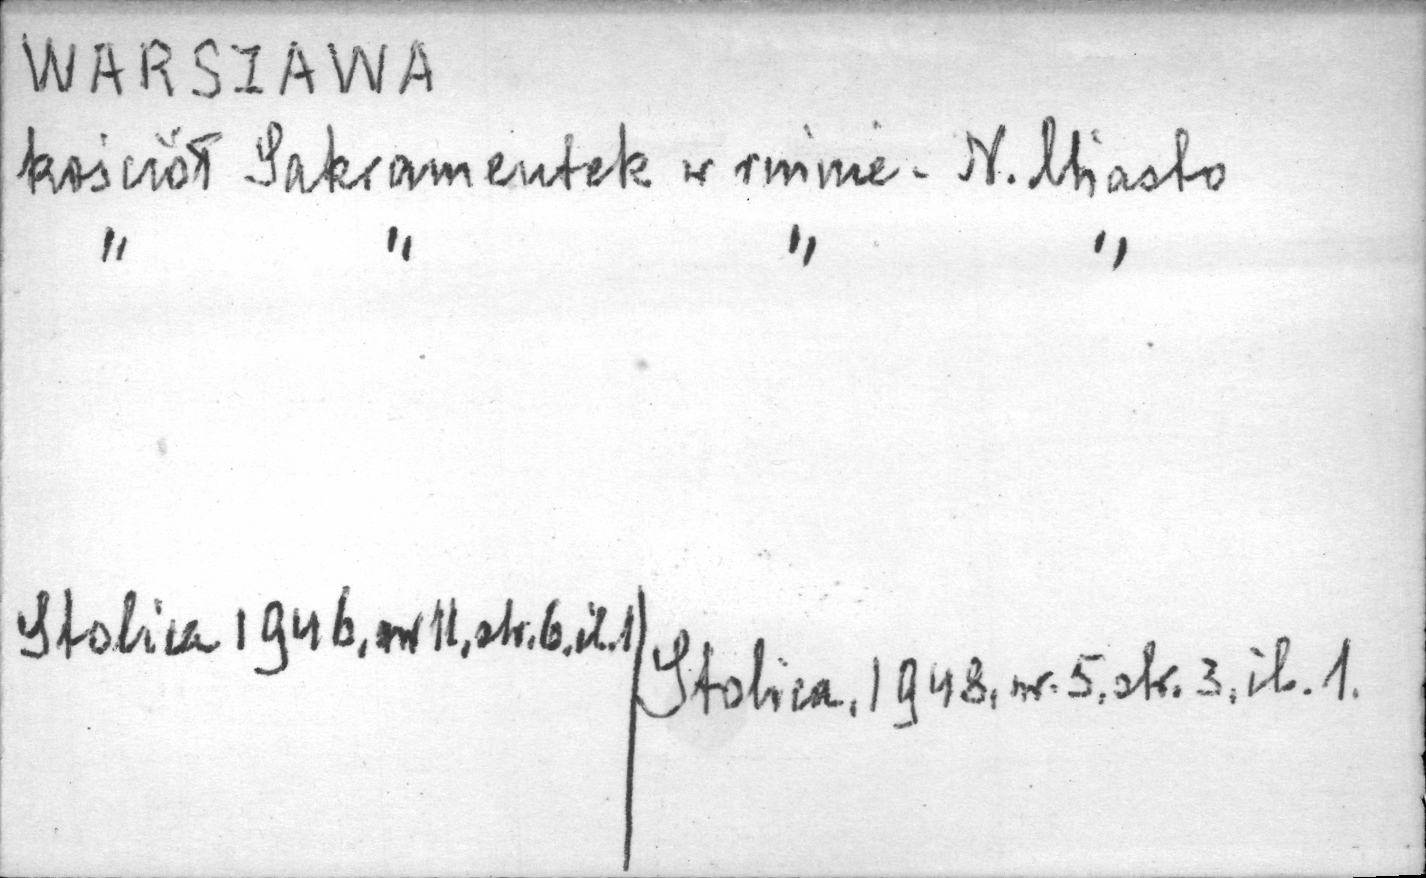 WARSZAWA
kościół Sakramentek w ruinie - N. Miasto
" " " "
Stolica 1946, nr 11, str. 6, il. 1
Stolica, 1948, nr. 5, str. 3, il. 1.